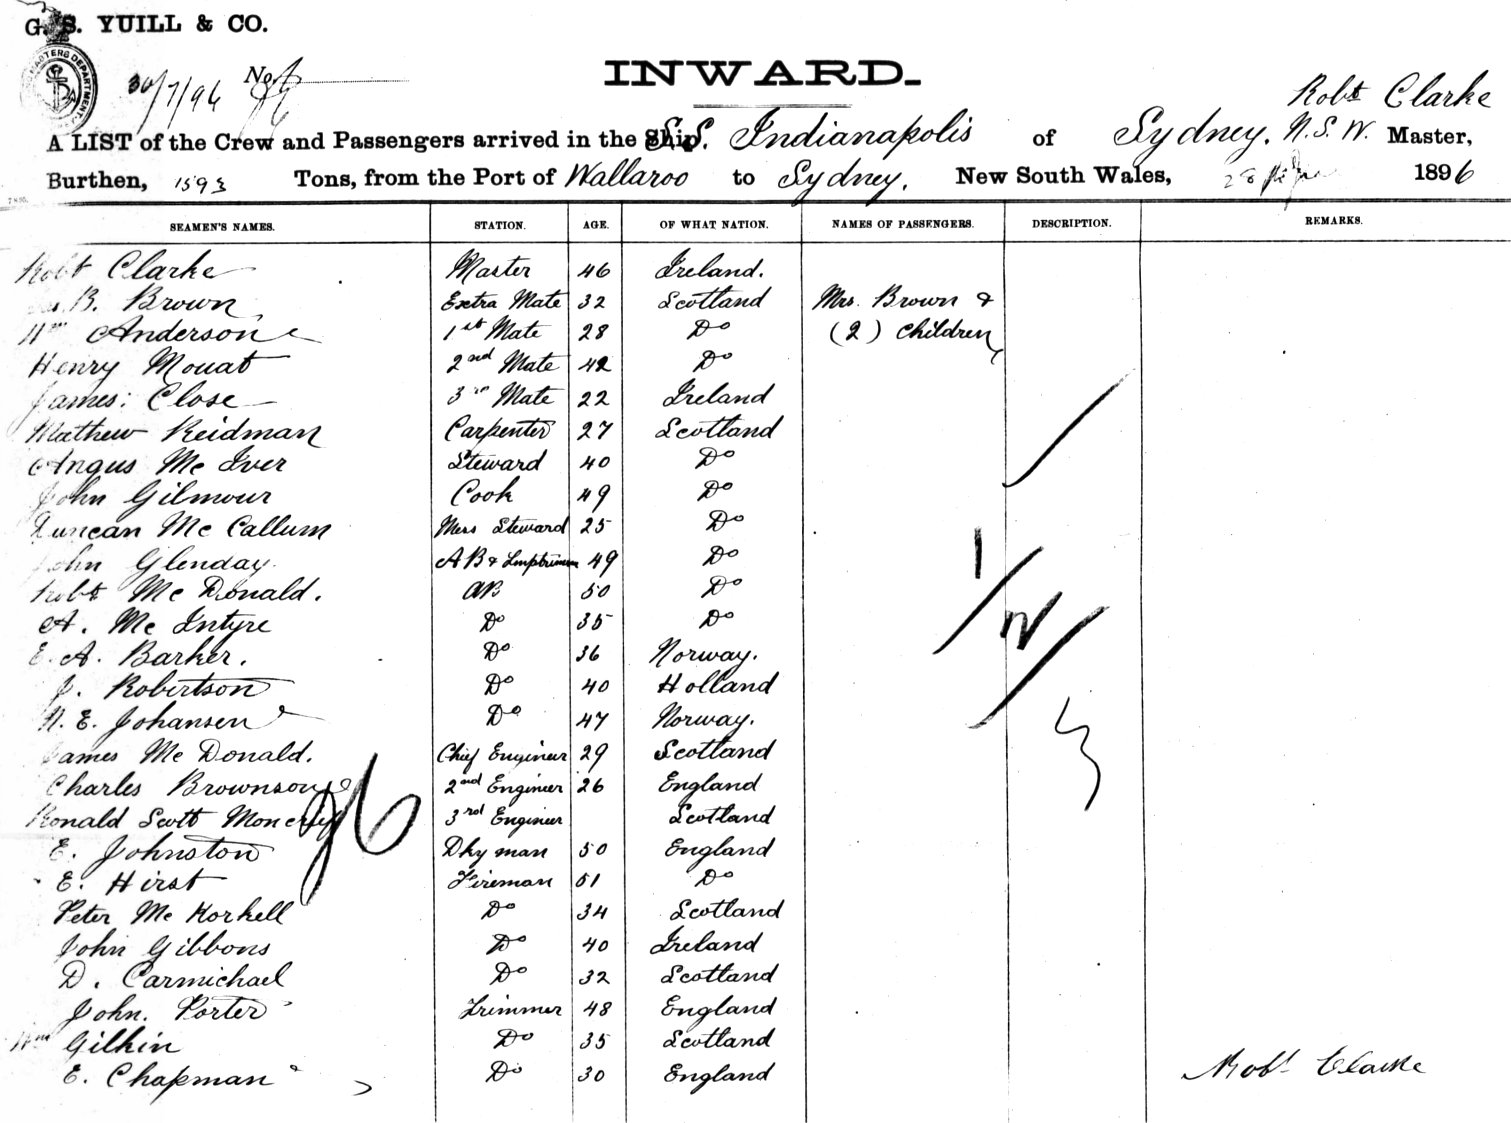 G. S. YUILL & CO.
30/7/96 No.
INWARD.
Robt Clarke
A LIST of the Crew and Passengers arrived in the Ship S.S. Indianapolis of Sydney. N.S.W. Master,
Burthen, 1593 Tons, from the Port of Wallaroo to Sydney, New South Wales, 28 1896
SEAMEN'S NAMES. STATION. AGE. OF WHAT NATION. NAMES OF PASSENGERS. DESCRIPTION. REMARKS.
Robt Clarke Master 46 Ireland.
B. Brown Extra Mate 32 Scotland Mrs. Brown &
Wm Anderson 1st Mate 28 Do (2) Children
Henry Mouat 2nd Mate 42 Do
James: Close 3rd Mate 22 Ireland
Mathew Reidman Carpenter 27 Scotland
Angus Mc Iver Steward 40 Do
John Gilmour Cook 49 Do
Duncan Mc Callum Mess Steward 25 Do
John Glenday AB & Lmptrimmer 49 Do
Robt Mc Donald. AB 50 Do
A. Mc Intyre Do 35 Do
E. A. Barker. Do 36 Norway.
J. Robertson Do 40 Holland
N. E. Johansen Do 47 Norway.
James Mc Donald. Chief Engineer 29 Scotland
Charles Brownson 2nd Engineer 26 England
Ronald Scott Moncrieff 3rd Engineer Scotland
E. Johnston Dky man 50 England
E. Hirst Fireman 51 Do
Peter Mc Korkell Do 34 Scotland
John Gibbons Do 40 Ireland
D. Carmichael Do 32 Scotland
John. Porter Trimmer 48 England
Wm Gilkin Do 35 Scotland
E. Chapman Do 30 England
Robt Clarke